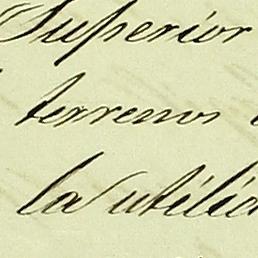 Superior
terrenos
la utilid